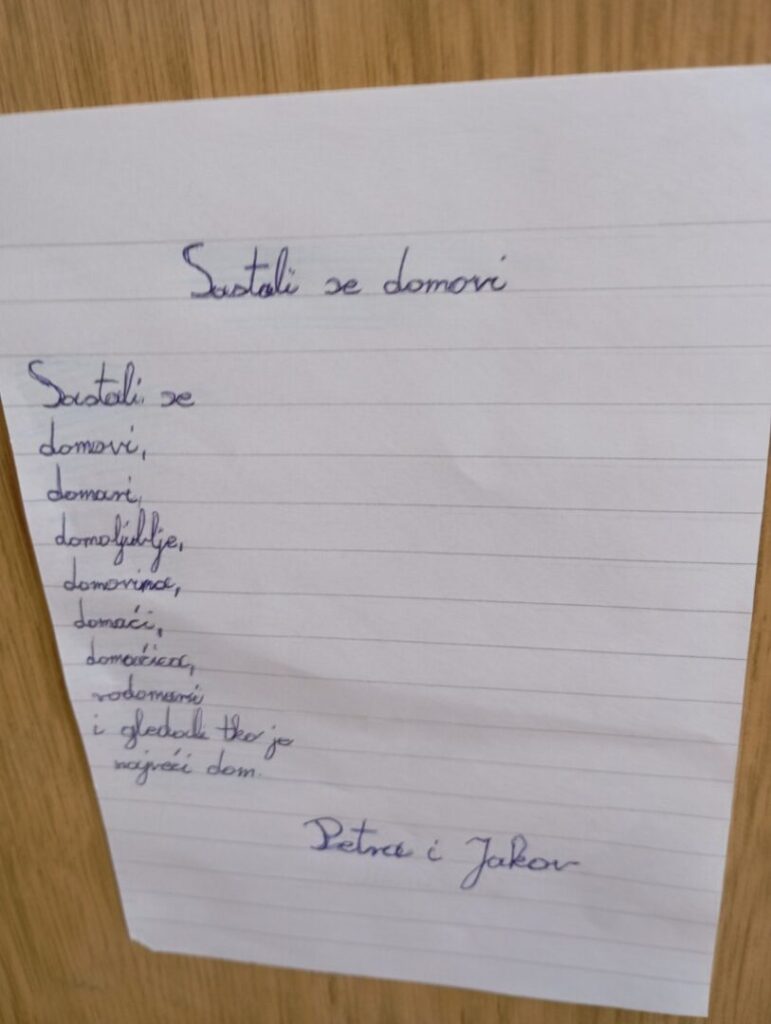 Sastali se domovi
Sastali se
domovi,
domari,
domoljublje,
domovina,
domaći,
domaćica,
vodomari
i gledali tko je
najveći dom.
Petra i Jakov